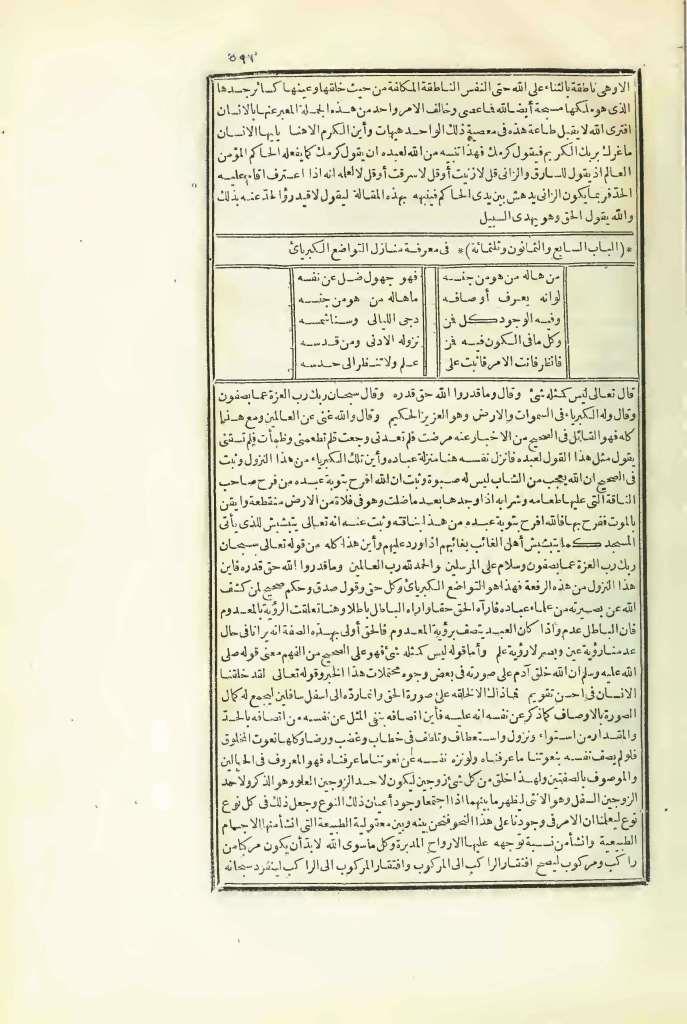 ٥٩٧
الا وهى ناطقة بالثناء على الله حتى النفس الناطقة المكلفة من حيث خلقها وعينها كسائر جسدها
الذى هو ملكها مسبحة أيضا لله فما عصى وخالف الامر واحد من هذه الجملة المعبر عنها بالانسان
افترى الله لا يقبل طاعة هذه فى معصية ذلك الواحد هيهات وأين الكرم الا هنا يا يها الانسان
ماغرك بربك الكريم فيقول كرمك فهذا تنبيه من الله لعبده ان يقول كرمك كما يفعله الحاكم المؤمن
العالم اذ يقول للسارق والزانى قل لا زنيت أو قل لا سرقت أو قل لا لعلمه انه اذا اعترف اقام عليه
الحد فربما يكون الزانى يدهش بين يدى الحاكم فينبهه بهذه المقالة ليقول لا فيدرؤ الحد عنه بذلك
والله يقول الحق وهو يهدى السبيل
*(الباب السابع والثمانون وثلثمائة)* فى معرفة منازل التواضع الكبريائى
من هاله من هو من جنسه فهو جهول ضل عن نفسه
لو انه يعرف أوصافه ماهاله من هو من جنسه
وفيه الوجود كل فن دجى الليالى وسنا شمسه
وكل ما فى الكون فيه فن نزوله الادنى ومن قدسه
فانظر فانت الامر فاثبت على علم ولا تنظر الى حدسه
قال تعالى ليس كمثله شئ وقال وما قدروا الله حق قدره وقال سبحان ربك رب العزة عما يصفون
وقال وله الكبرياء فى السموات والارض وهو العزيز الحكيم وقال والله غنى عن العالمين ومع هذا
كله فهو القائل فى الصحيح من الاخبار عنه مرضت فلم تعدنى وجعت فلم تطعمنى وظمأت فلم تسقنى
يقول مثل هذا القول لعبده فانزل نفسه هنا منزلة عباده وأين تلك الكبرياء من هذا النزول وثبت
فى الصحيح ان الله يعجب من الشاب ليس له صبوة وثبت ان الله افرح بتوبة عبده من فرح صاحب
الناقة التى عليها طعامه وشرابه اذا وجدها بعد ما ضلت وهو فى فلاة من الارض منقطعة وايقن
بالموت ففرح بها فالله افرح بتوبة عبده من هذا بناقته وثبت عنه انه تعالى يتبشبش للذى يأتى
المسجد كما يتبشبش أهل الغائب بغائبهم اذا ورد عليهم وأين هذا كله من قوله تعالى سبحان
ربك رب العزة عما يصفون وسلام على المرسلين والحمد لله رب العالمين وما قدروا الله حق قدره فاين
هذا النزول من هذه الرفعة فهذا هو التواضع الكبريائى وكل حق وقول صدق وحكم صحيح لمن كشف
الله عن بصيرته من علماء عباده فاراه الحق حقا واراه الباطل باطلا وهنا تعلقت الرؤية بالمعدوم
فان الباطل عدم واذا كان العبد يتصف برؤية المعدوم فالحق أولى بهذه الصفة انه يرانا فى حال
عدمنا رؤية عين وبصر لا رؤية علم وأما قوله ليس كمثله شئ فهو على الصحيح من الفهم معنى قوله صلى
الله عليه وسلم ان الله خلق آدم على صورته فى بعض وجوه محتملات هذا الخبر وقوله تعالى لقد خلقنا
الانسان فى احسن تقويم فما ذلك الا خلقه على صورة الحق وانما رده الى اسفل سافلين ليجمع له كمال
الصورة بالاوصاف كما ذكر عن نفسه انه عليه فأين اتصافه بنفى المثل عن نفسه من اتصافه بالحد
والمقدار من استواء ونزول واستعطاف وتلطف فى خطاب وغضب ورضا وكلها نعوت المخلوق
فلو لم يصف نفسه بنعوتنا ما عرفناه ولو نزه نفسه عن نعوتنا ما عرفناه فهو المعروف فى الحالين
والموصوف بالصفتين ولهذا خلق من كل شئ زوجين ليكون لاحد الزوجين العلو وهو الذكر ولاحد
الزوجين السفل وهو الانثى ليظهر ما بينهما اذا اجتمعا وجود أعيان ذلك النوع وجعل ذلك فى كل نوع
نوع ليعلمنا ان الامر فى وجودنا على هذا النحو فنحن بينه وبين معقولية الطبيعة التى انشأ منها الاجسام
الطبيعية وانشأ من نسبة توجهه عليها الارواح المدبرة وكل ما سوى الله لا بد أن يكون مركبا من
راكب ومركوب ليصح افتقار الراكب الى المركوب وافتقار المركوب الى الراكب لينفرد سبحانه